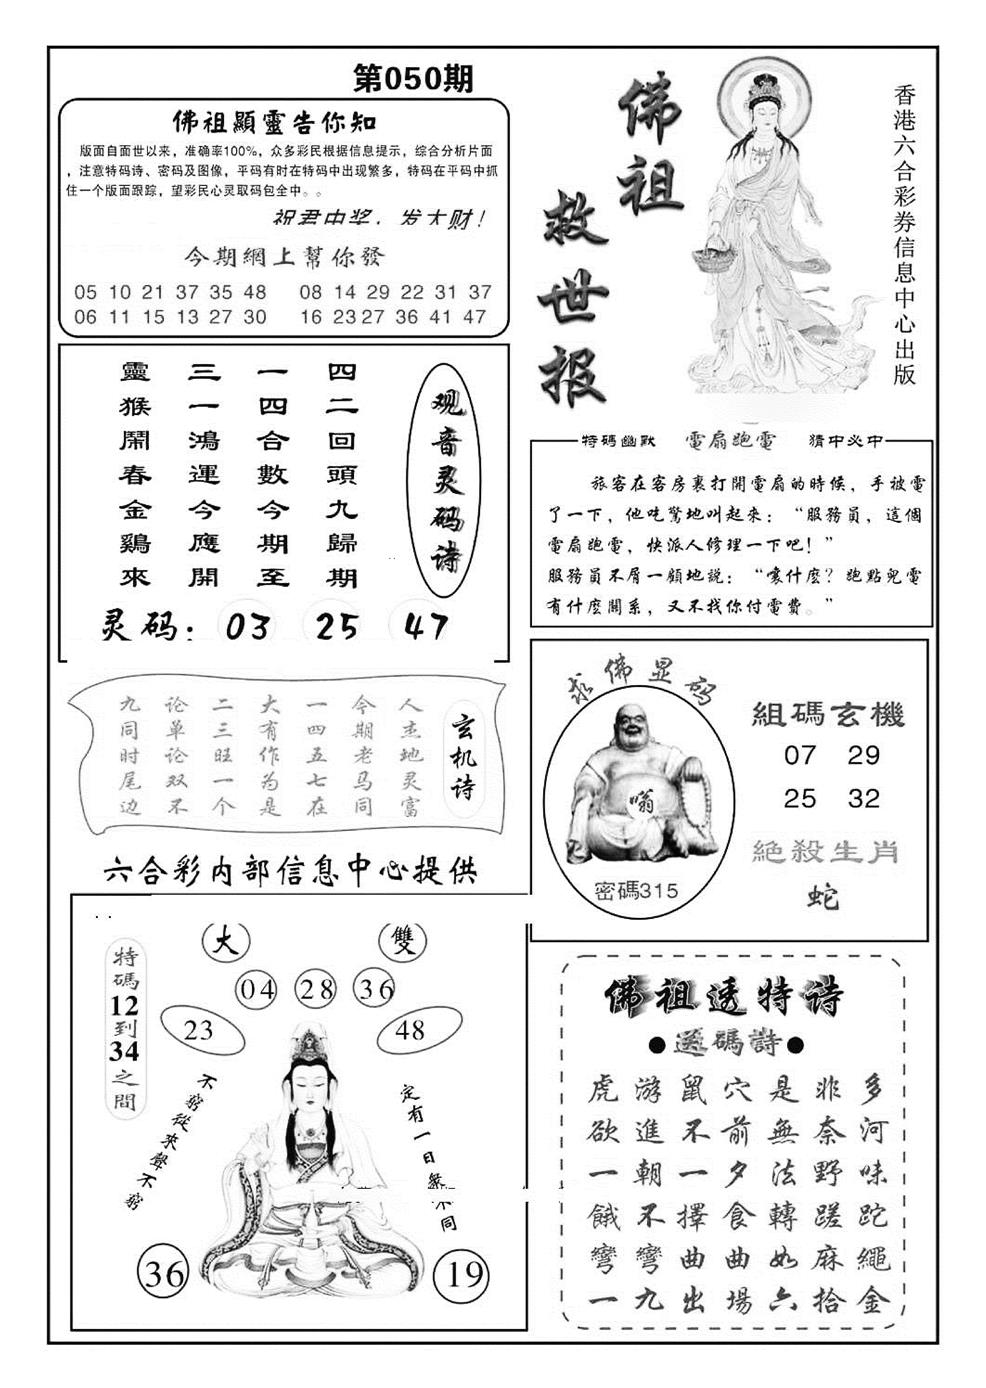 第050期
佛祖顯靈告你知
版面自面世以来，准确率100%，众多彩民根据信息提示，综合分析片面
，注意特码诗、密码及图像，平码有时在特码中出现繁多，特码在平码中抓
住一个版面跟踪，望彩民心灵取码包全中。。
祝君中奖，发大财！
今期網上幫你發
05 10 21 37 35 48 08 14 29 22 31 37
06 11 15 13 27 30 16 23 27 36 41 47
佛祖
救世报
香港六合彩券信息中心出版
靈猴鬧春金鷄來
三一鴻運今應開
一四合數今期至
四二回頭九歸期
观音灵码诗
灵码：03 25 47
特碼幽默 電扇跑電 猜中必中
旅客在客房裏打開電扇的時候，手被電
了一下，他吃驚地叫起來：“服務員，這個
電扇跑電，快派人修理一下吧！”
服務員不屑一顧地説：“嚷什麽？跑點兒電
有什麽關系，又不找你付電費。”
九同时尾边
论单论双不
二三旺一个
大有作为是
一四五七在
今期老马同
人杰地灵富
玄机诗
求佛显码
嗡
密碼315
組碼玄機
07 29
25 32
絕殺生肖
蛇
六合彩内部信息中心提供
特碼12到34之間
大
雙
04 28 36
23
48
不窮從來聲不窮
定有一日無不同
36
19
佛祖透特诗
●送碼詩●
虎游鼠穴是非多
欲進不前無奈河
一朝一夕法野味
餓不擇食轉蹉跎
彎彎曲曲如麻繩
一九出場六拾金